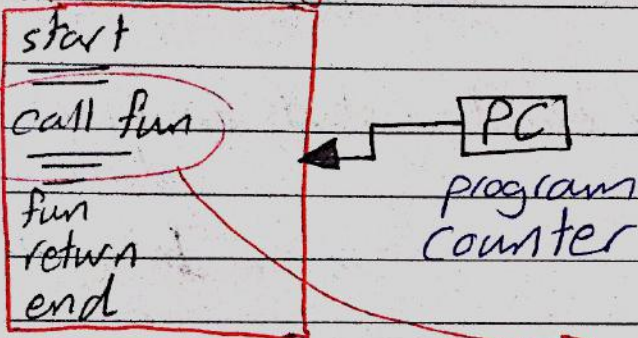 start
call fun
fun
return
end
PC
program
counter